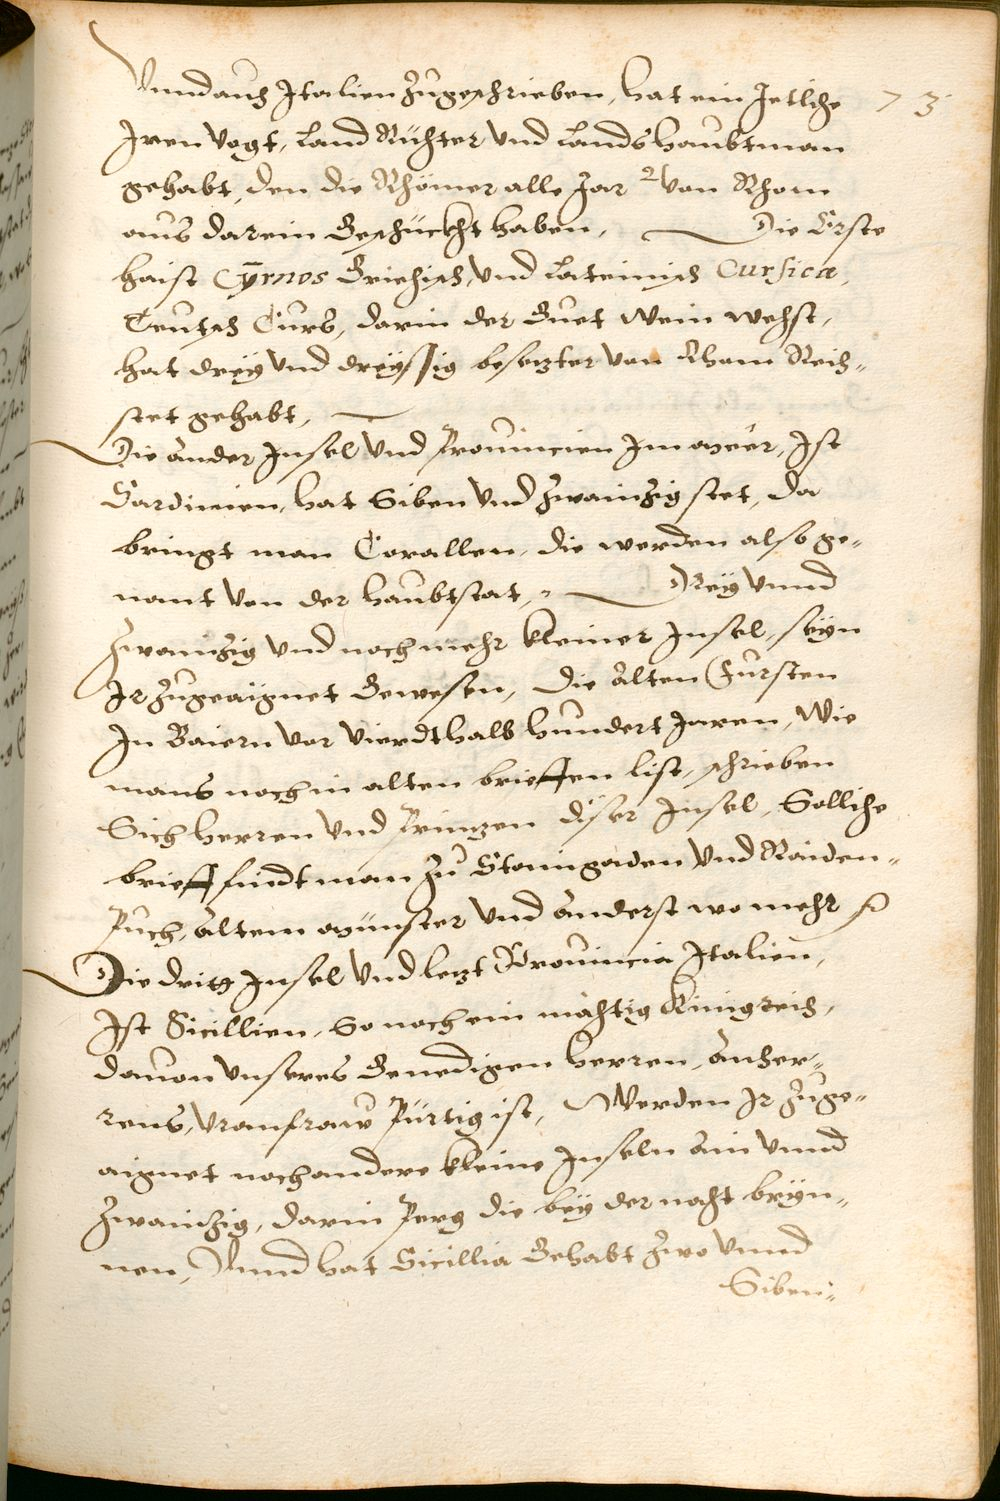 Vnnd auch Italien Zugeschrieben, hat ein Jetliche
73
Iren Vogt, Land Richter vnd Landshaubtman
gehabt, den die Rhömer alle Jar von Rhom
aus darein Geschückht haben, Die Erste
haist Cyrnos Griechisch, vnd Lateinisch Cursica,
Teutsch Curs, darin der Guet Wein wechst,
hat dreÿ vnd dreÿssig besetzter von Rhom Reich-
stet gehabt,
Die ander Insel vnd Prouincien Im meer, Ist
Sardinien, hat Siben vnd Zwainzig stet, da
bringt man Corallen, die werden also ge-
nant von der haubtstat, Dreÿ vnnd
Zwainzig vnd noch mehr kleiner Insel, seyn
Ir Zugeaignet Gewesen, die alten Fursten
In Baiern vor Vierdthalb hundert Jaren, Wie
mans noch in alten brieffen list, schrieben
Sich herren vnd Printzen diser Insel, Solliche
brieff findt man Zu Staingaden vnd Raiden-
Puch, altem münster vnd anderst wo mehr
Die dritt Insel vnd letzt Prouincia Italien,
Ist Sicillien, So noch ein mächtig Künigreich,
dauon vnseres Genedigen herren, anher-
rens, Vranfraw Pürtig ist, Werden Ir Zuge-
aignet noch andere kleine Inseln ain vnnd
Zwainzig, darin Perg die beÿ der nacht bryn-
nen, Vnnd hat Sicillia Gehabt Zwo vnnd
Siben-